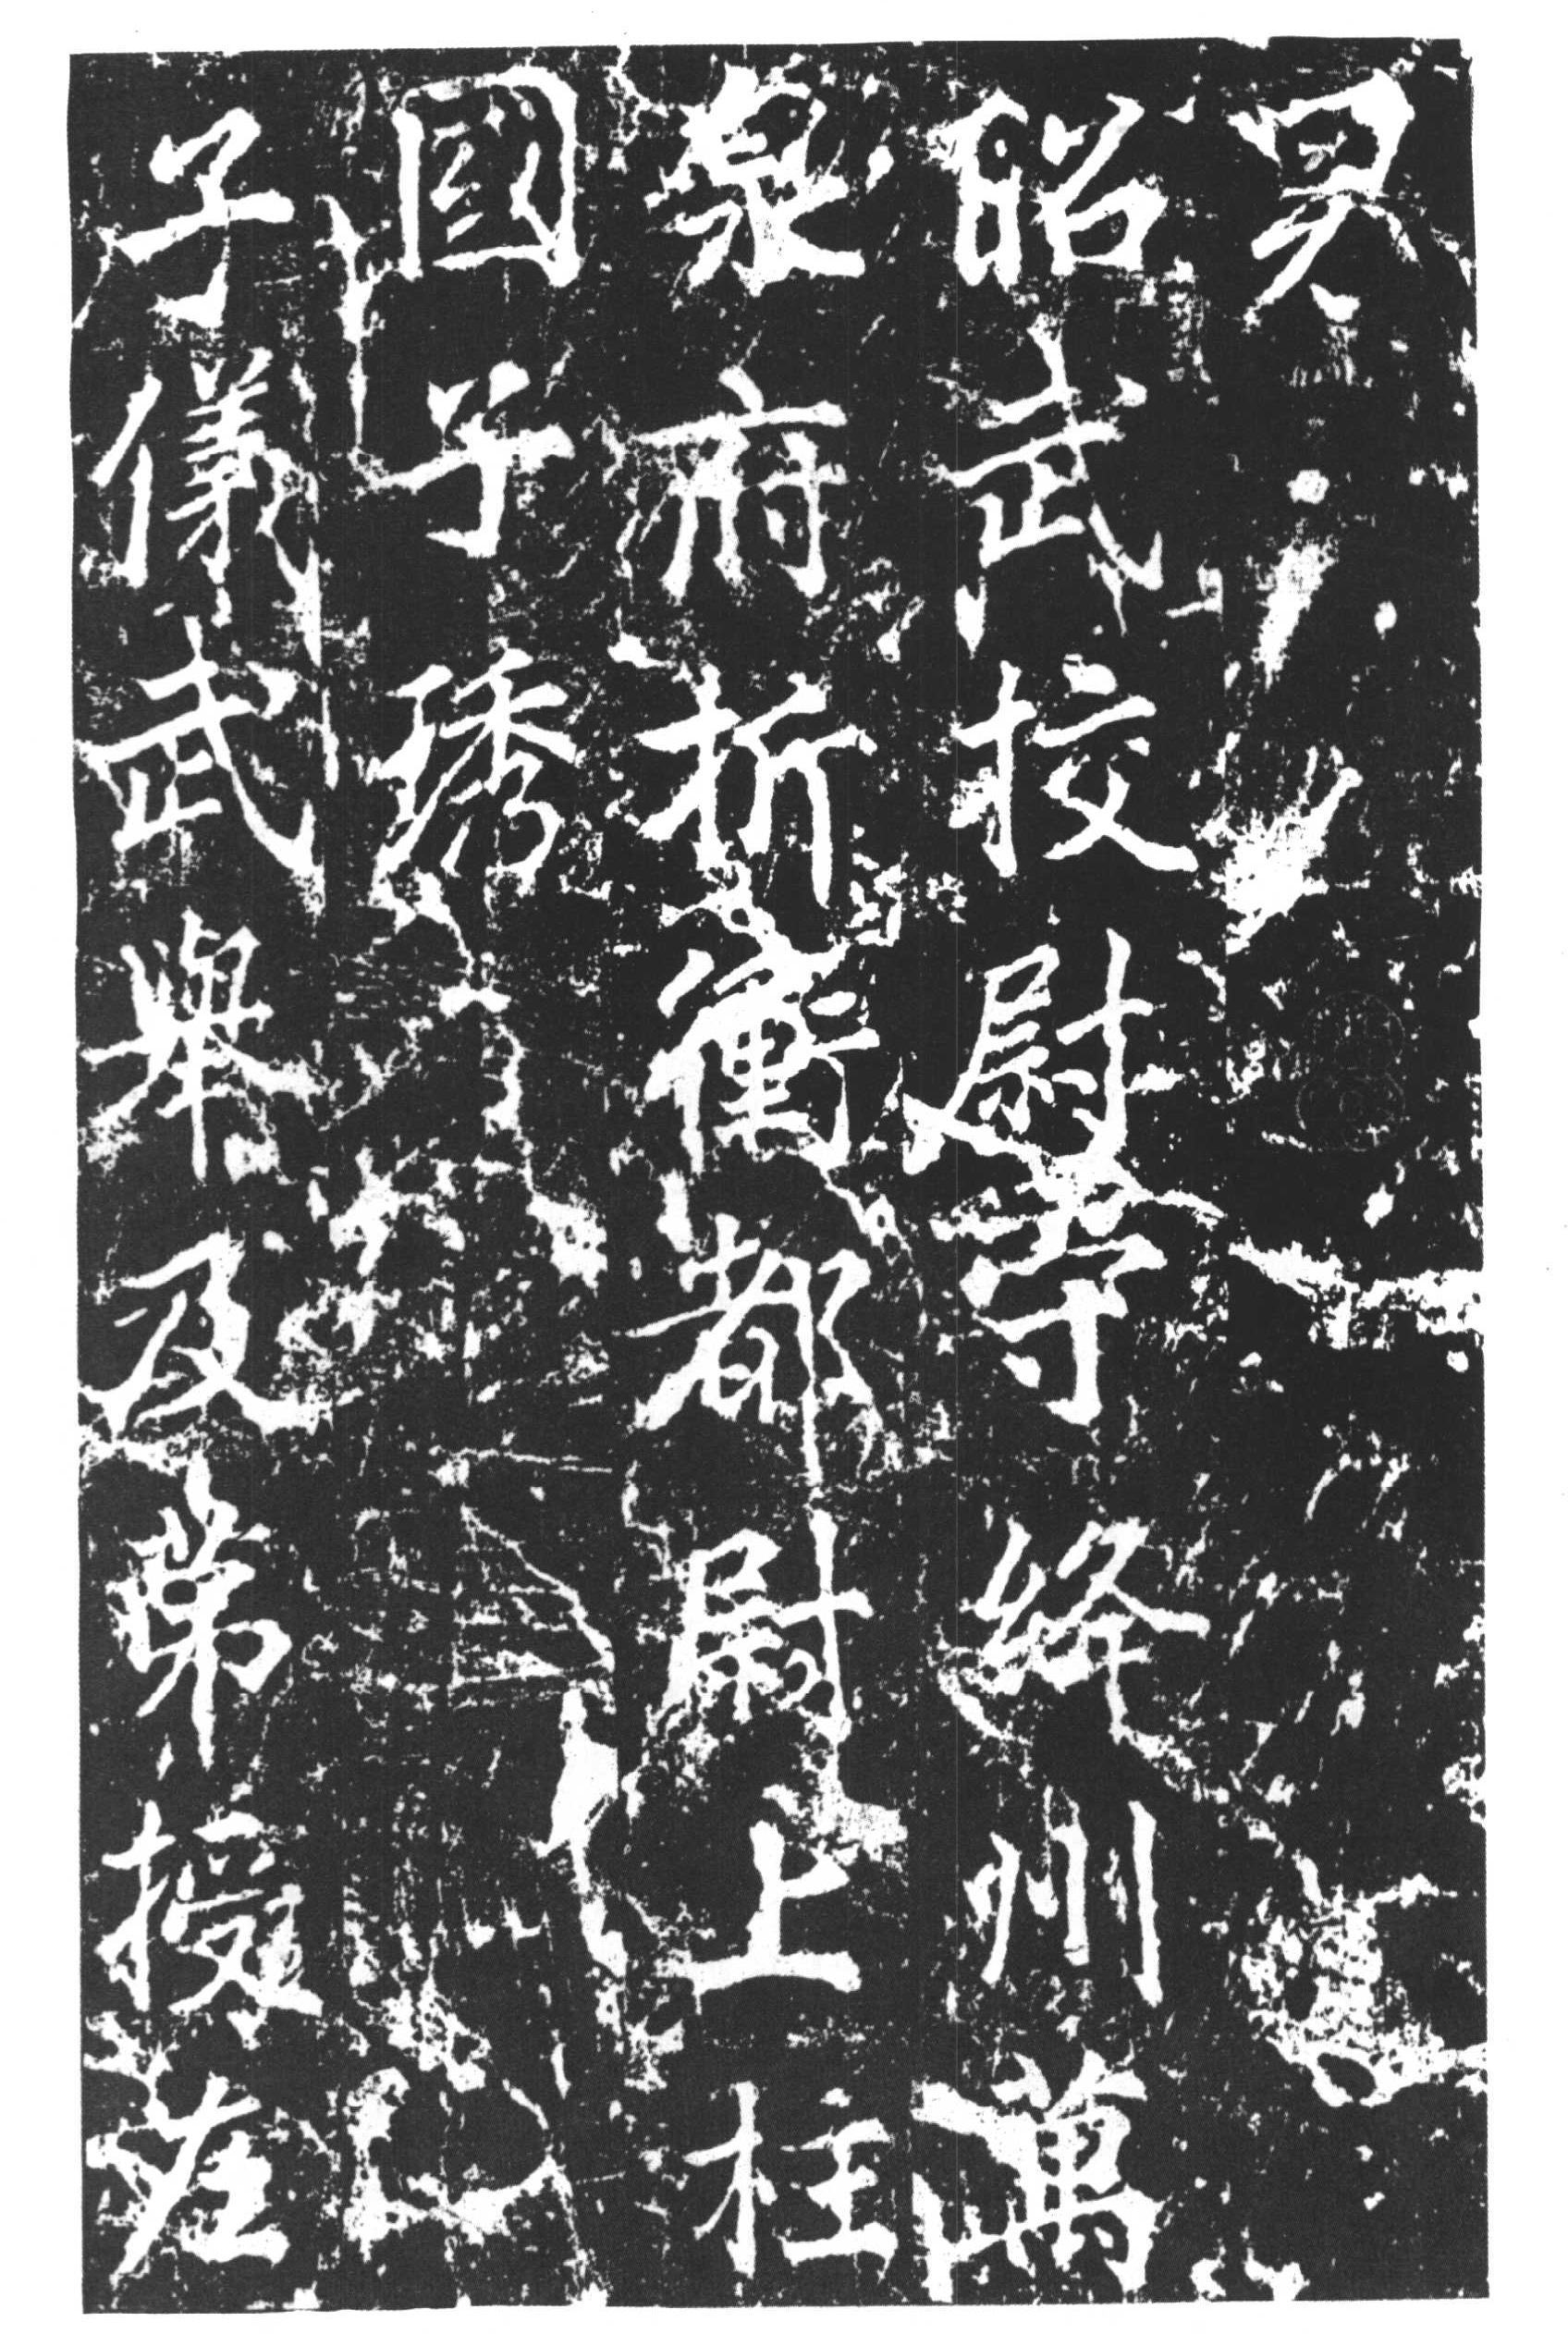 昃
昭武校尉守絳州萬
泉府折衝都尉上柱
國子琇
子儀武舉及第授左